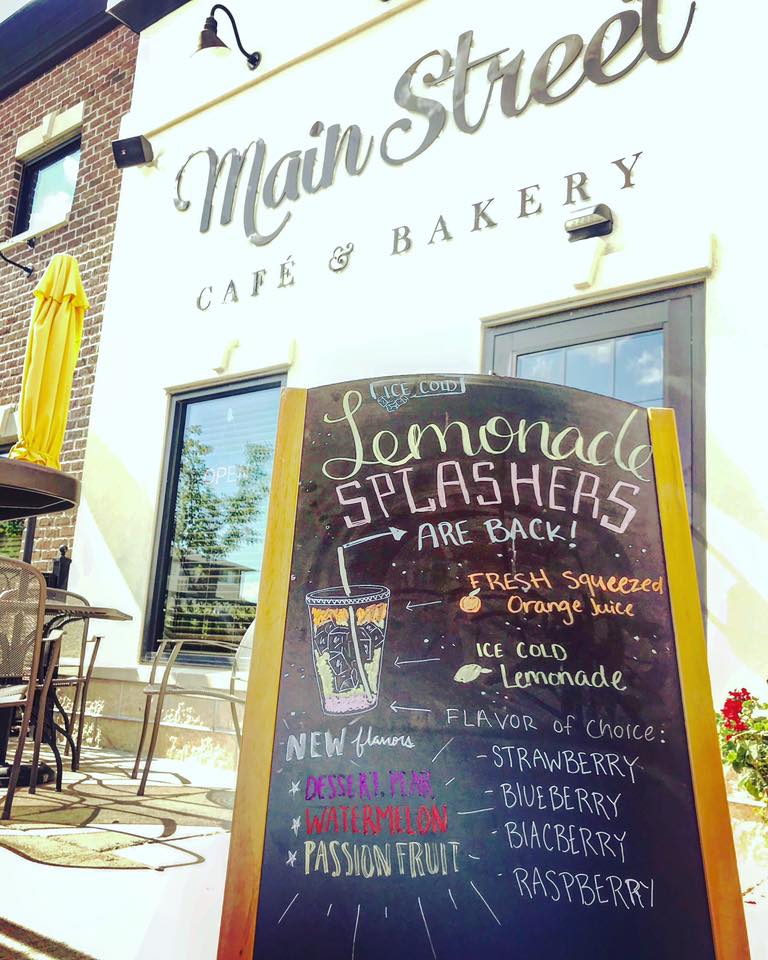 Main Street
CAFÉ & BAKERY
OPEN
ICE COLD
Lemonade
SPLASHERS
ARE BACK!
FRESH Squeezed
Orange Juice
ICE COLD
Lemonade
FLAVOR of CHOICE:
- STRAWBERRY
- BLUEBERRY
- BLACBERRY
- RASPBERRY
NEW flavors
* DESSERT PEAR
* WATERMELON
* PASSION FRUIT